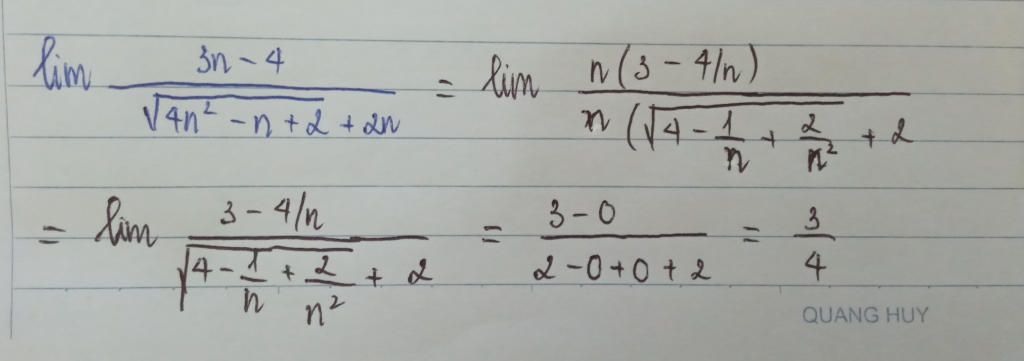 lim (3n - 4)/(√(4n² - n + 2) + 2n) = lim n(3 - 4/n)/n(√(4 - 1/n + 2/n²) + 2
= lim (3 - 4/n)/(√(4 - 1/n + 2/n²) + 2) = (3 - 0)/(2 - 0 + 0 + 2) = 3/4
QUANG HUY